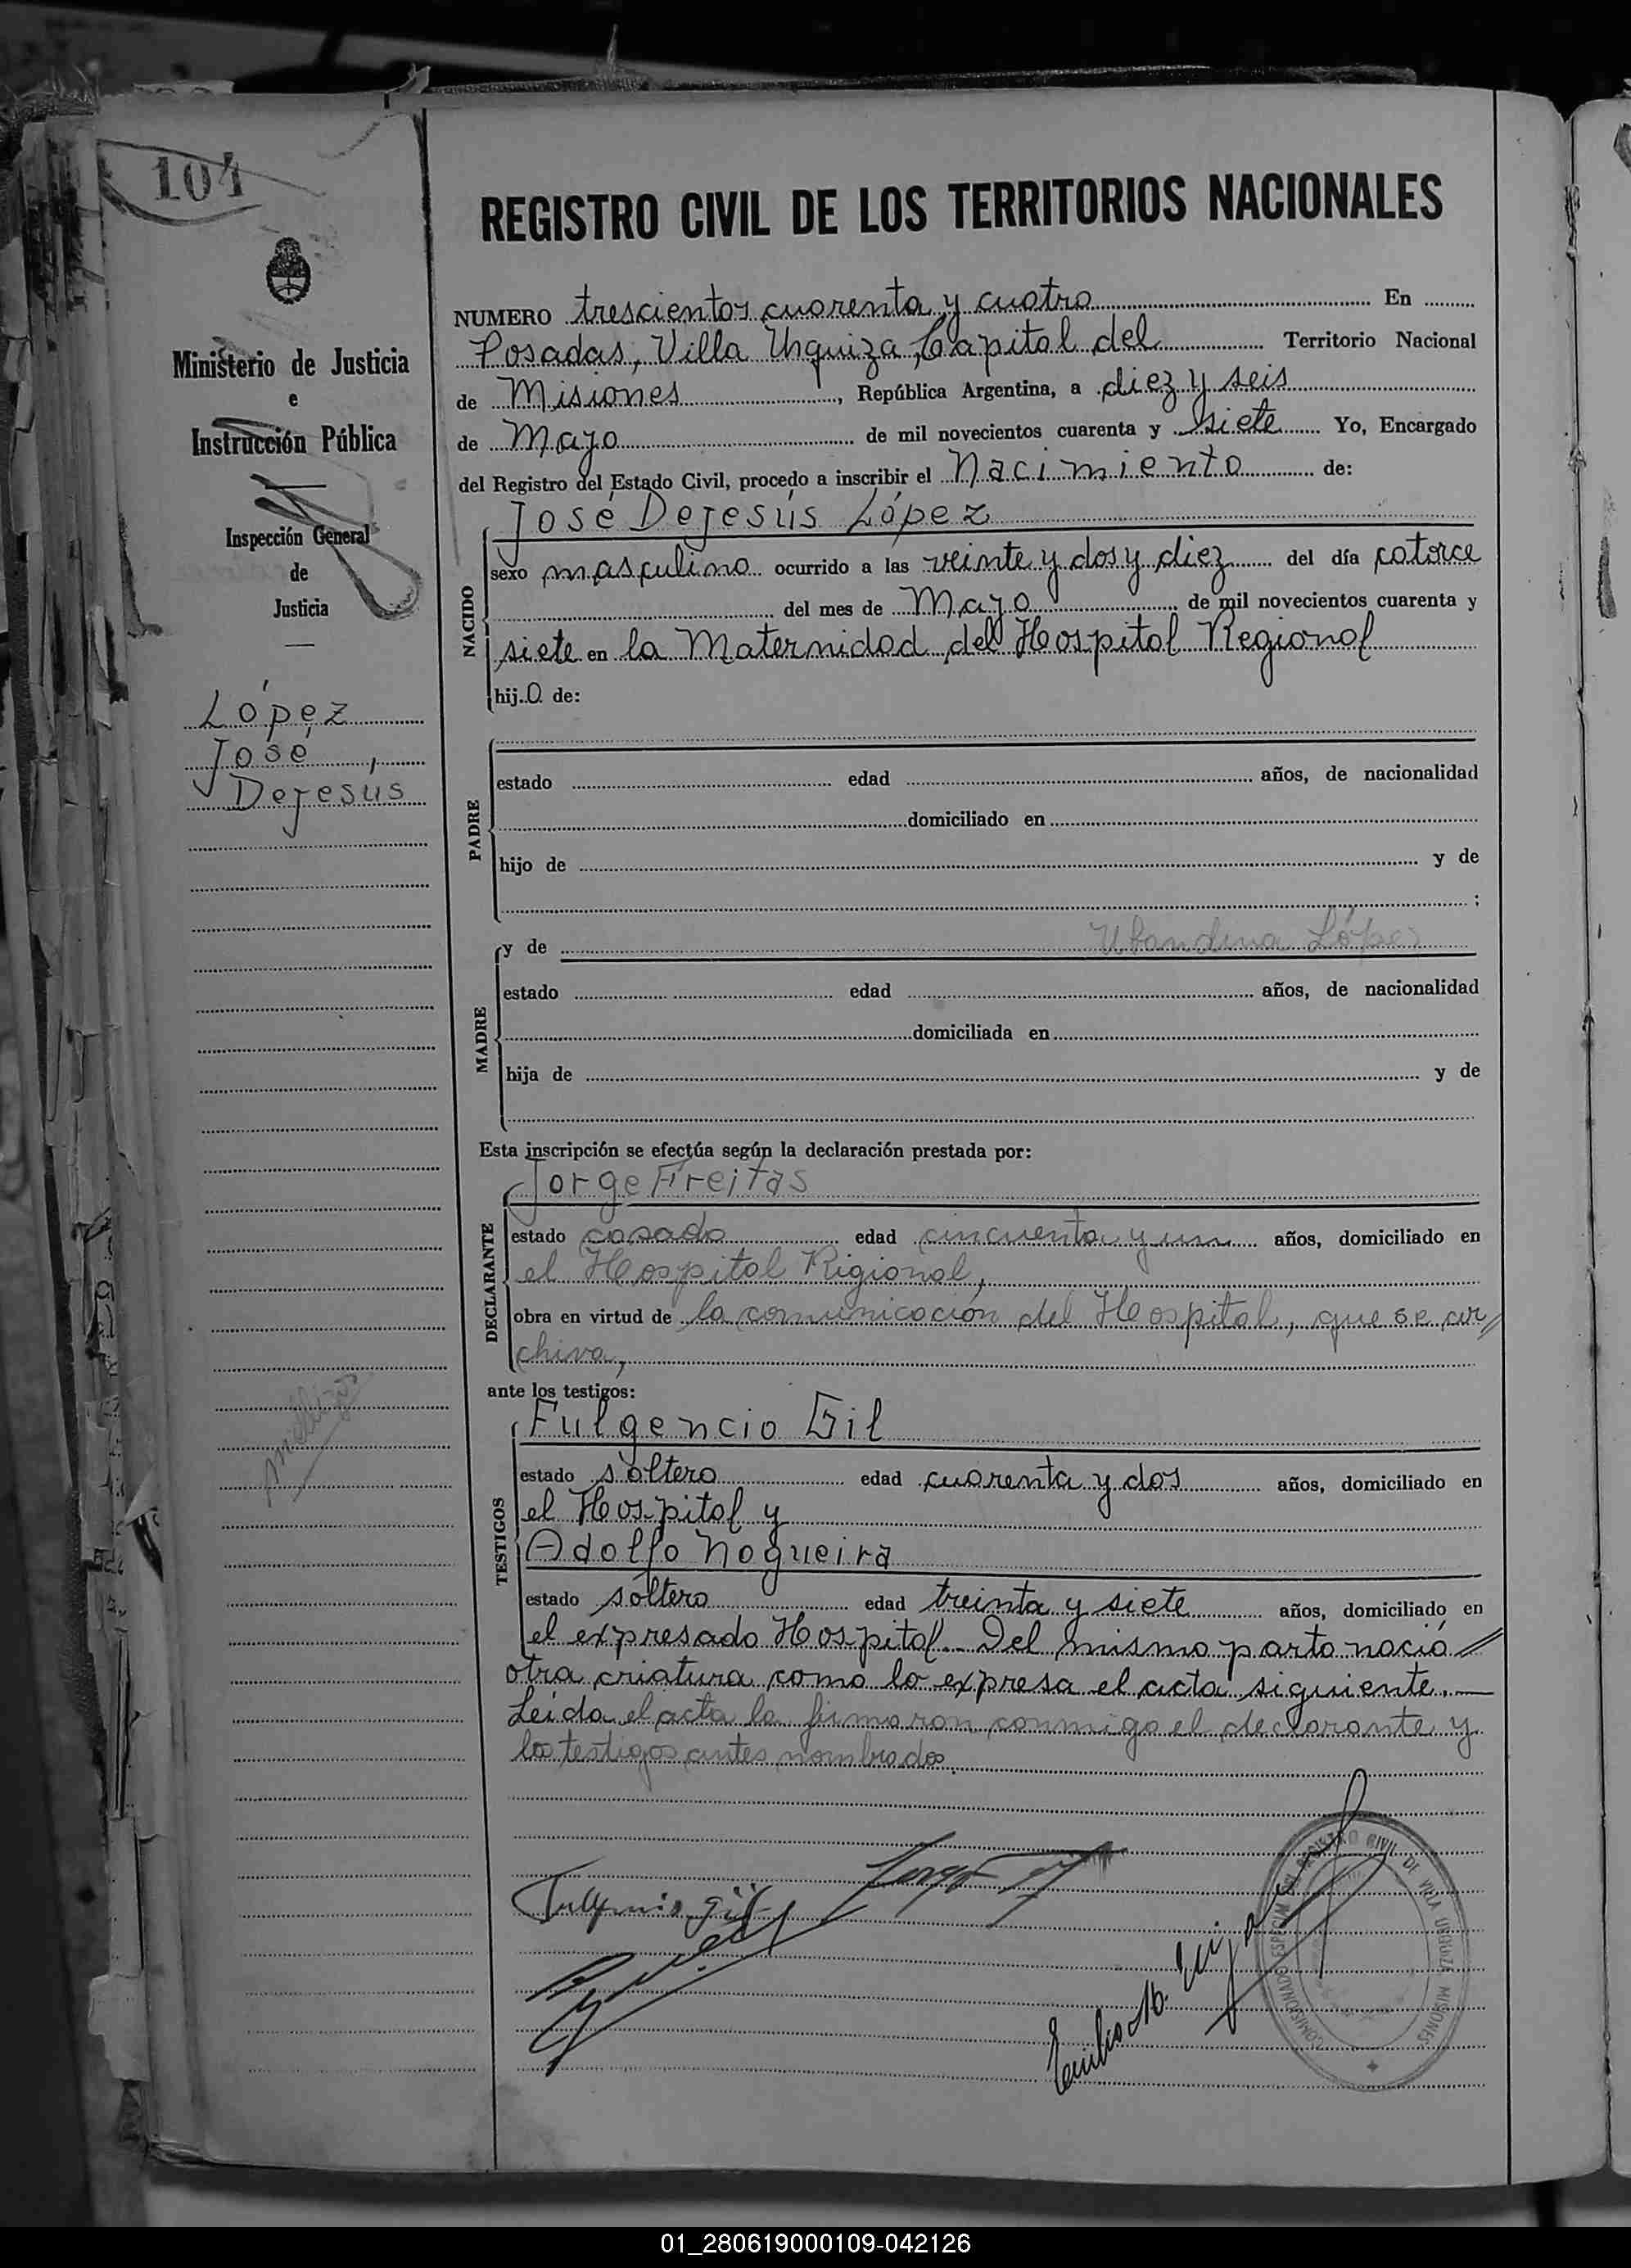 104
REGISTRO CIVIL DE LOS TERRITORIOS NACIONALES
Ministerio de Justicia
e
Instrucción Pública
Inspección General
de
Justicia
López
José
Dejesús
mellizos
NUMERO trescientos cuarenta y cuatro En
Posadas, Villa Urquiza, Capital del Territorio Nacional
de Misiones, República Argentina, a diez y seis
de Mayo de mil novecientos cuarenta y siete Yo, Encargado
del Registro del Estado Civil, procedo a inscribir el Nacimiento de:
José Dejesús López
NACIDO
sexo masculino ocurrido a las veinte y dos y diez del día catorce
del mes de Mayo de mil novecientos cuarenta y
siete en la Maternidad del Hospital Regional
hijo de:
PADRE
estado edad años, de nacionalidad
domiciliado en
hijo de y de
;
MADRE
y de López
estado edad años, de nacionalidad
domiciliada en
hija de y de
Esta inscripción se efectúa según la declaración prestada por:
DECLARANTE
Jorge Freitas
estado casado edad cincuenta y un años, domiciliado en
el Hospital Rigional,
obra en virtud de la comunicación del Hospital, que se ar//
chiva,
ante los testigos:
TESTIGOS
Fulgencio Gil
estado soltero edad cuarenta y dos años, domiciliado en
el Hospital y
Adolfo Nogueira
estado soltero edad treinta y siete años, domiciliado en
el expresado Hospital.- Del mismo parto nació//
otra criatura como lo expresa el acta siguiente.—
Leida el acta la firmaron conmigo el declarante y
los testigos antes nombrados.
Fulgencio Gil
REGISTRO CIVIL DE VILLA URQUIZA MISIONES
COMISIONADO ESPECIAL
01_280619000109-042126